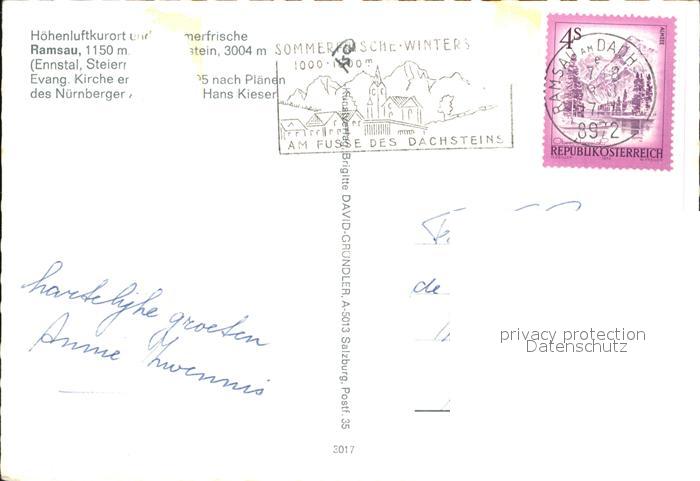 Höhenluftkurort und merfrische
Ramsau, 1150 m stein, 3004 m
(Ennstal, Steierm
Evang. Kirche er 95 nach Plänen
des Nürnberger Hans Kieser
SOMMERFRISCHE · WINTERS
1000 · m
AM FUSSE DES DACHSTEINS
4s
ALMSEE
REPUBLIK ÖSTERREICH
RAMSAU AM DACH
8972
verlag Brigitte DAVID-GRÜNDLER, A-5013 Salzburg, Postf. 35
3017
hartelijke groeten
Annie
de
privacy protection
Datenschutz